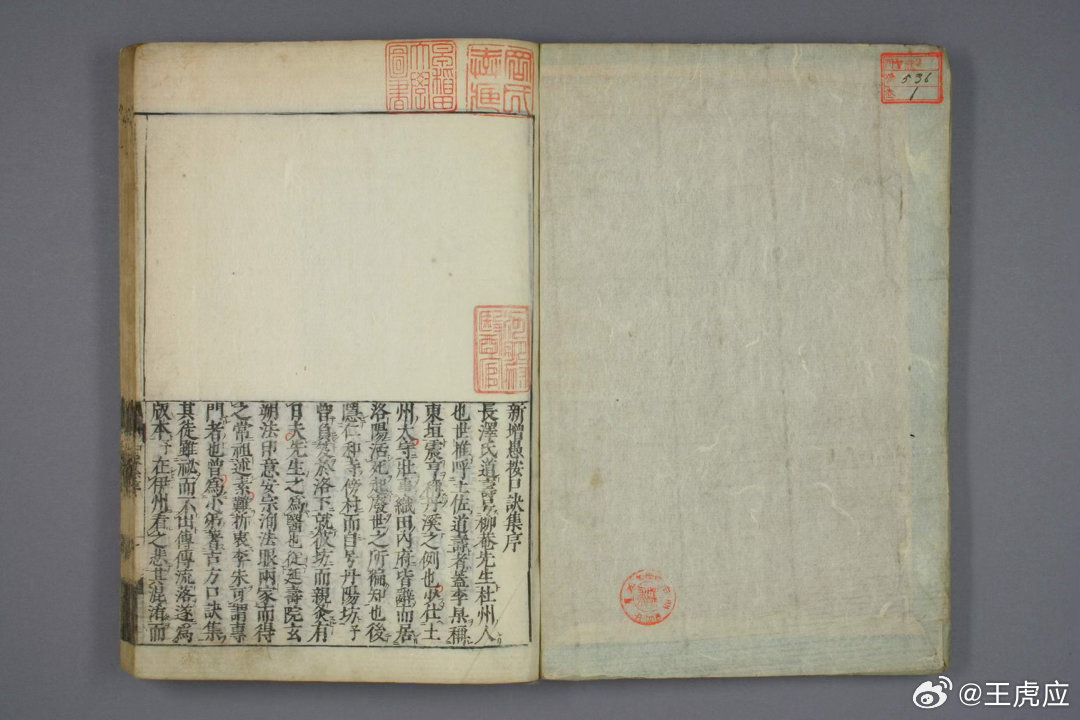 536
1
早稲田大學圖書
新增愚按口訣集序
長澤氏道壽号柳菴先生土州人
也世推呼土佐道壽者蓋李杲稱
東垣震亨稱丹溪之例也少仕土
州太守壯事織田內府皆辭而居
洛陽活死起廢世之所徧知也後
隱仁和寺傍村而自号丹陽坊予
曾負笈於洛下就彼坊而親炙有
日夫先生之為醫也從延壽院玄
朔法印意安宗洵法眼兩家而得
之常祖述素難折衷李朱可謂專
門者也曾為小弟著古方口訣集
其徒雖祕而不出傳傳流落遂為
版本予在伊州看之悲其混淆而
@王虎应